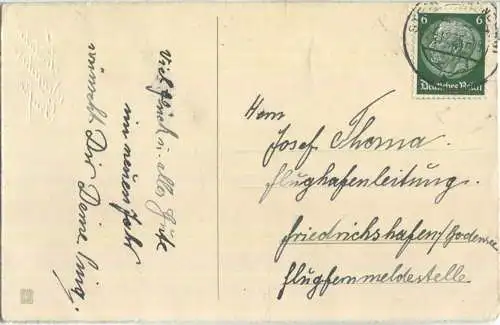 Viel Glück u. alles Gute
im neuen Jahr
wünscht Dir Deine
6
Deutsches Reich
Herrn
Josef Thoma.
Flughafenleitung.
Friedrichshafen/Bodensee
Flugfernmeldestelle